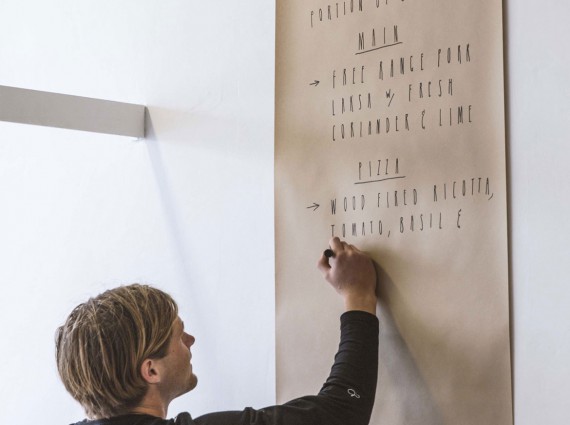 PORTION OF
MAIN
→ FREE RANGE PORK
LAKSA w/ FRESH
CORIANDER & LIME
PIZZA
→ WOOD FIRED RICOTTA,
TOMATO, BASIL &